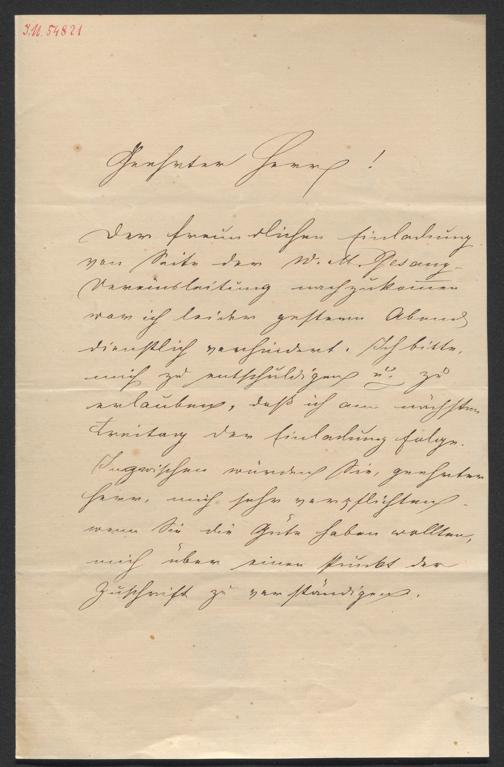 I.N. 54821
Geehrter Herr!
Der freundlichen Einladung
von Seite der W. M. Gesang-
Vereinsleitung nachzukommen
war ich leider gestern Abend
dienstlich verhindert. Ich bitte,
mich zu entschuldigen u. zu
erlauben, daß ich am nächsten
Freitag der Einladung folge.
Inzwischen würden Sie, geehrter
Herr, mich sehr verpflichten,
wenn Sie die Güte haben wollten,
mich über einen Punkt der
Zuschrift zu verständigen.